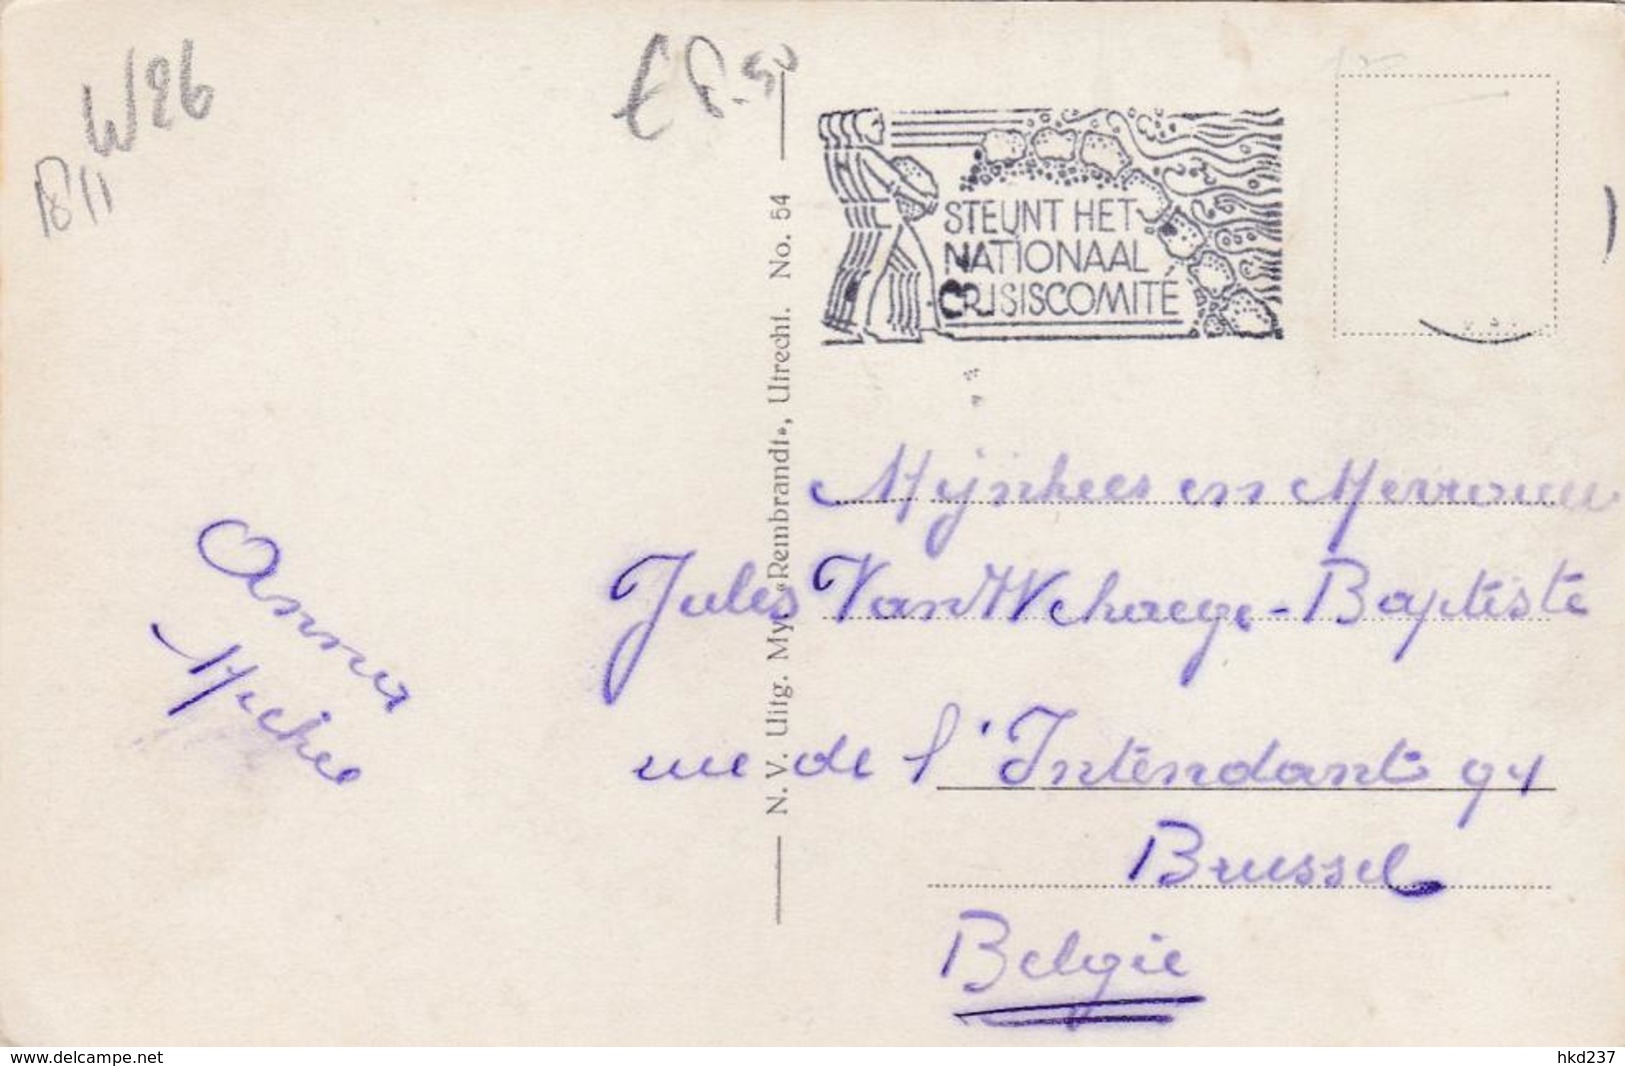 W26
STEUNT HET
NATIONAAL
CRISISCOMITÉ
N. V. Uitg. My. «Rembrandt», Utrecht. No. 54
Anna
Mijnheer en Mevrouw
Jules Van Wchaege-Baptiste
rue de l'Intendant 94
Brussel
België
www.delcampe.net
hkd237